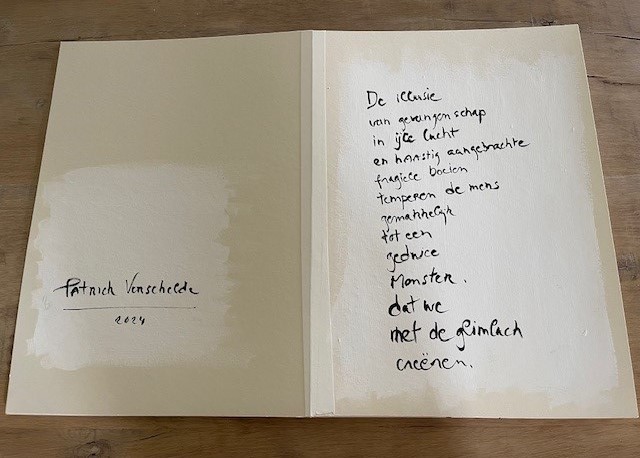 Patrick Verschelde
2024
De illusie
van gevangenschap
in ijle lucht
en haastig aangebrachte
fragiele boeien
temperen de mens
gemakkelijk
tot een
gedwee
Monster.
dat we
met de glimlach
creëren.